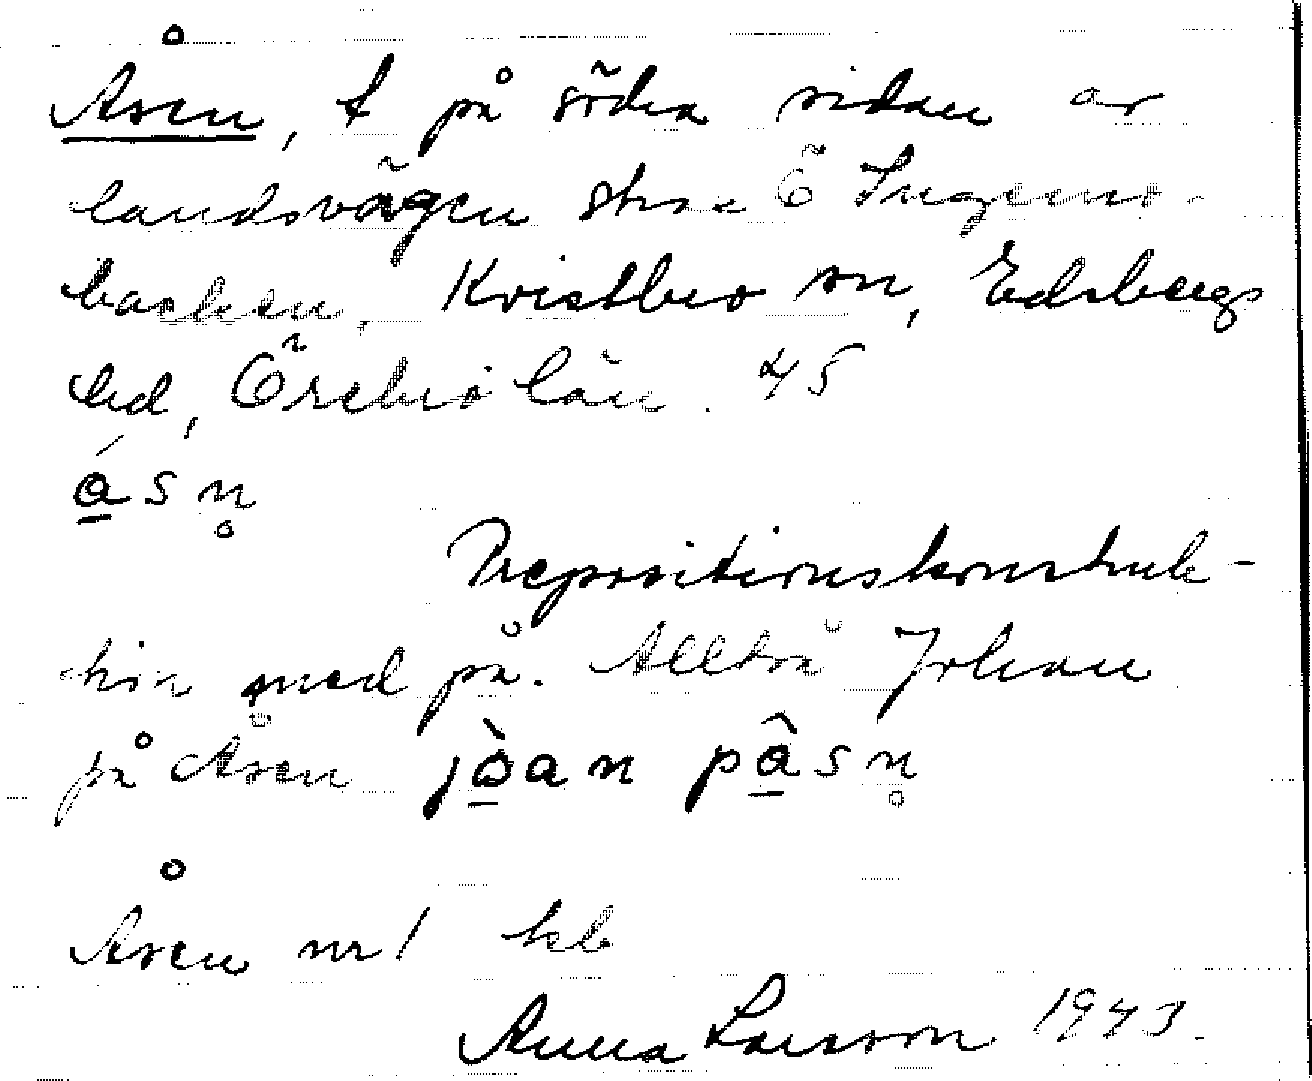 Åsen, t på södra sidan av
landsvägen strax Ö Ingems-
backen, Kvistbro sn, Edsbergs
hd, Örebro län. 45
ásn̥
Prepositionskonstruk-
tion med på. Alltså Johan
på Åsen jòan pâsn̥
Åsen nr 1 kb
Anna Larsson 1943.